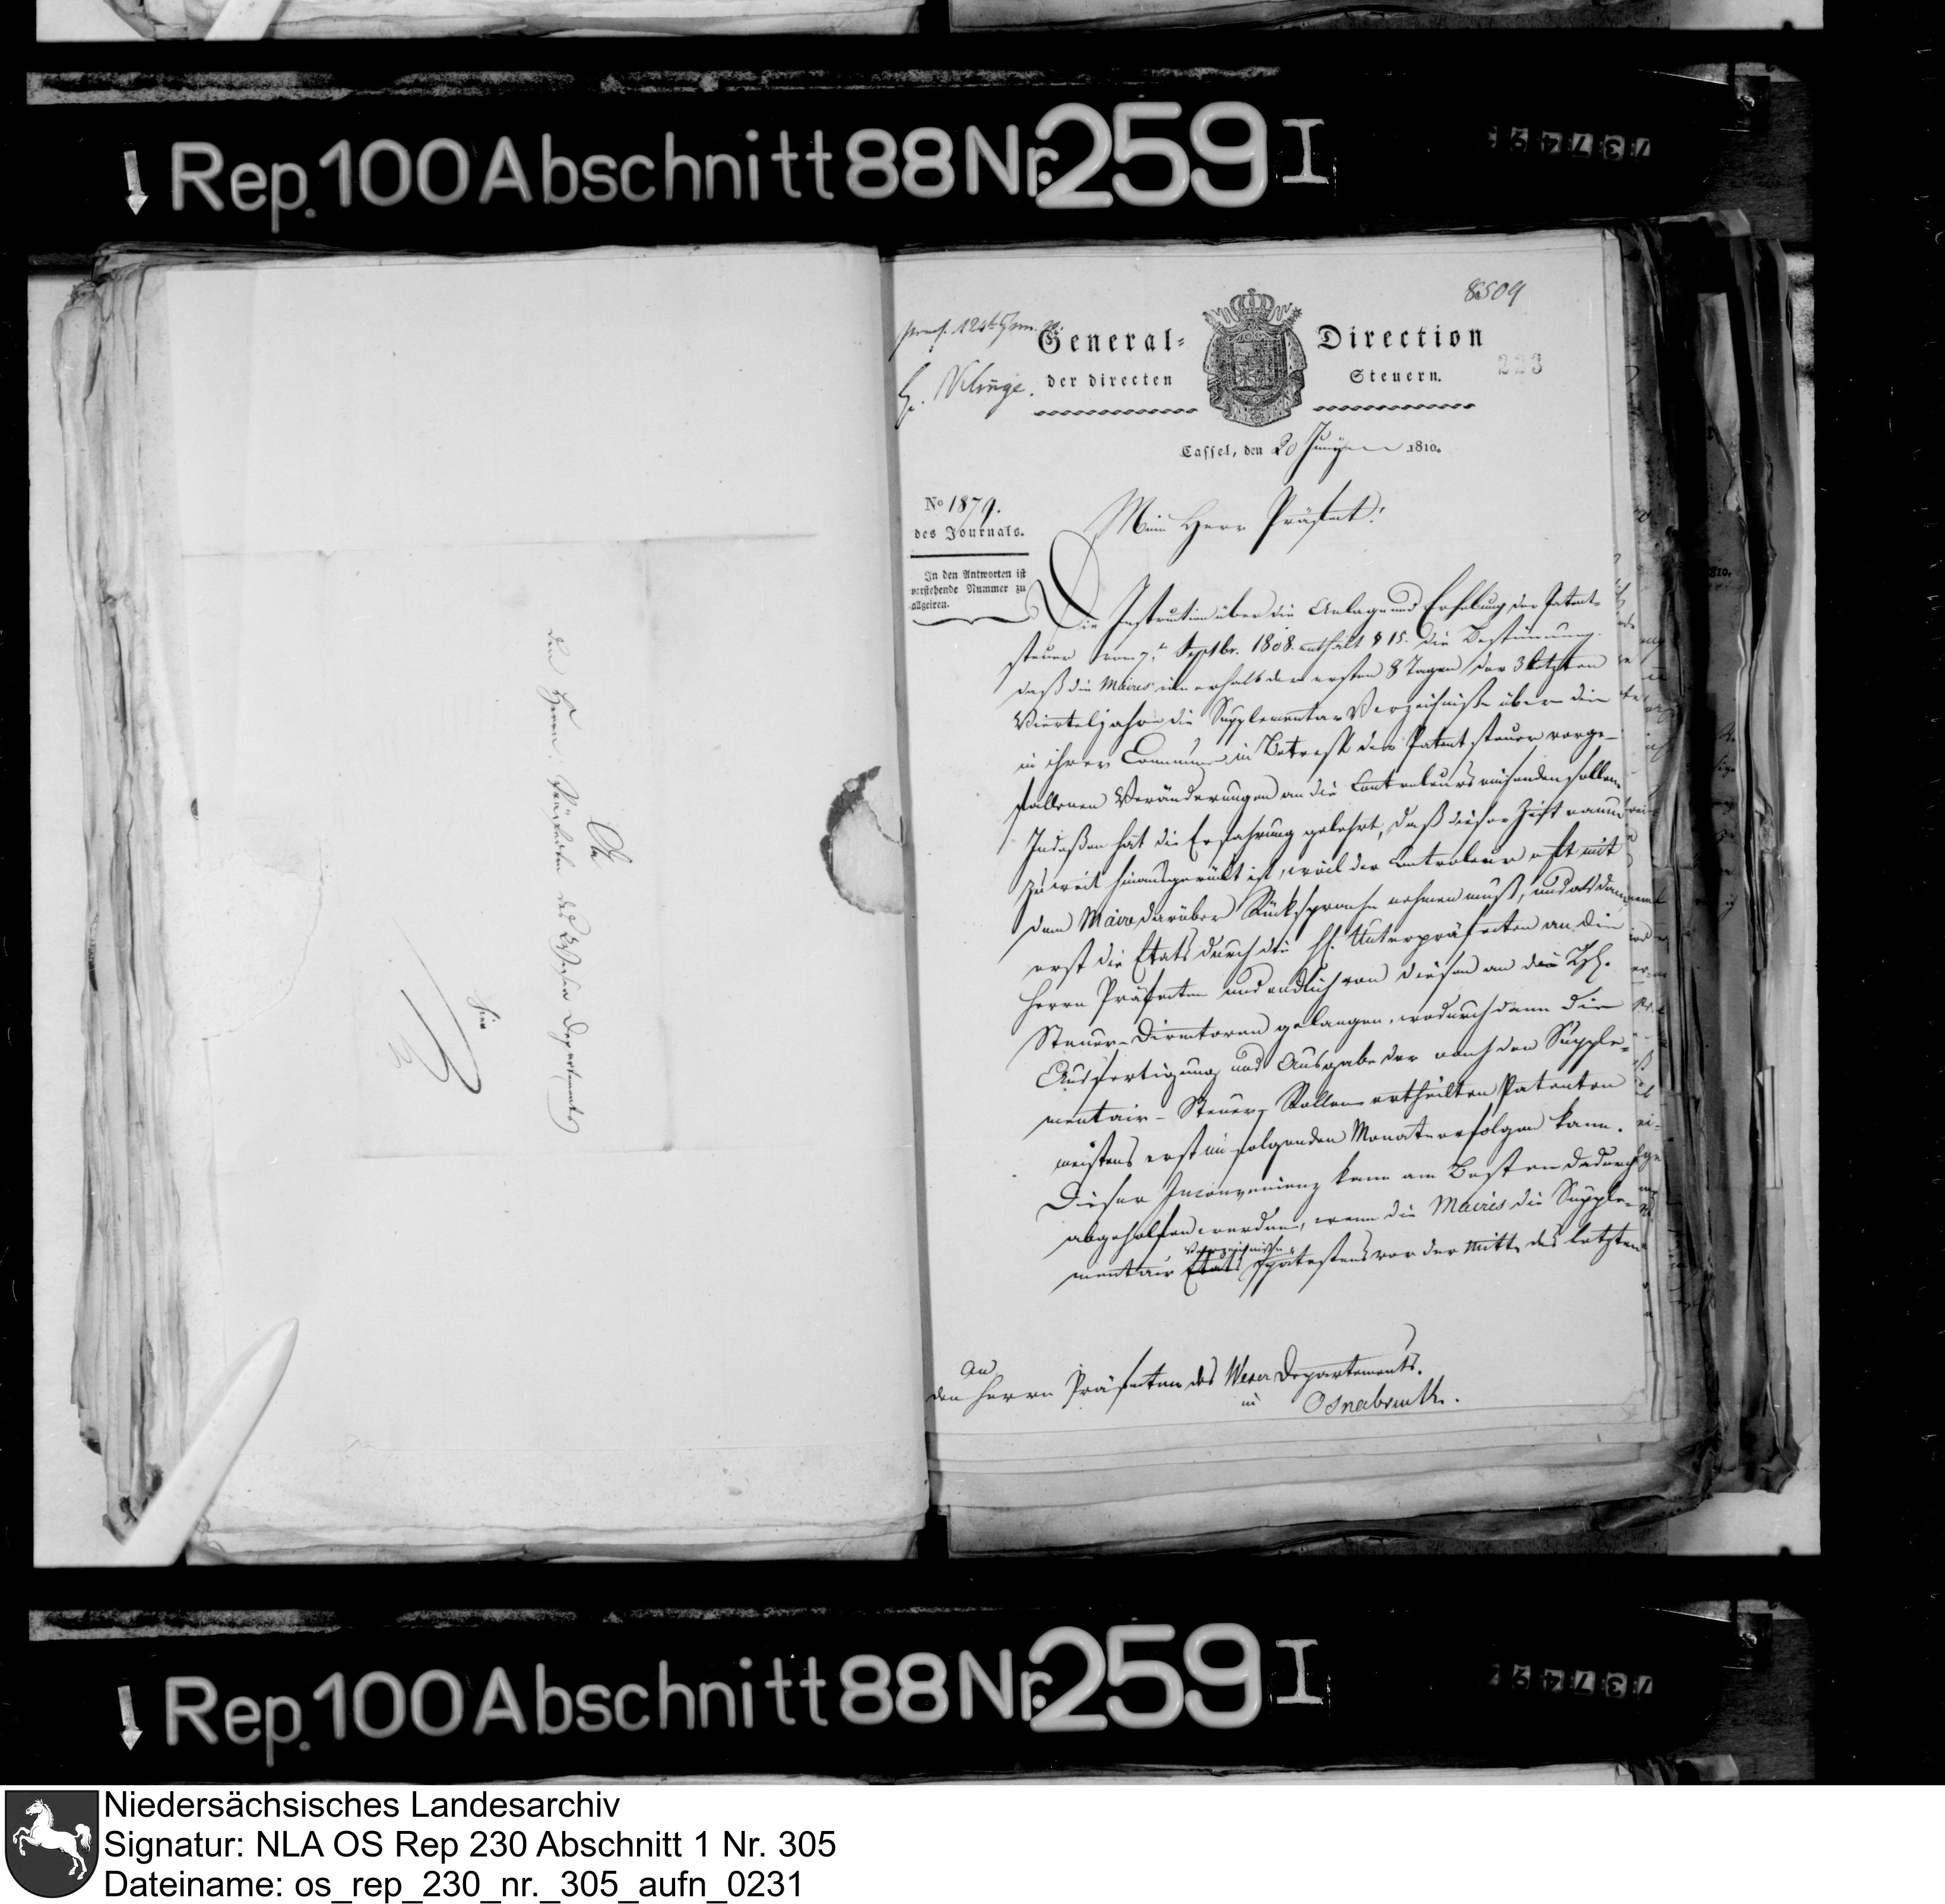 Rep. 100 Abschnitt 88 Nr. 259 I
An
den Herrn Präfecten des Weser Departements
hier
8509
praes. 12ten
H. Kluge.
General- Direction
der directen Steuern.
223
Cassel, den 20 Juny 1810.
No 1879.
des Journals.
In den Antworten ist
vorstehende Nummer zu
allgeiren.
Mein Herr Präfect!
Die Instruction über die Anlage und Erhebung der Patent-
steuer vom 7ten Septbr. 1808. enthält § 15. die Bestimmung
daß die Maires innerhalb der ersten 8 Tagen der 3 letzten
Vierteljahre die Supplementar Verzeichnisse über die
in ihrer Commune in Betreff der Patentsteuer vorge-
fallenen Veränderungen an die Controleurs einsenden sollen.
Indeßen hat die Erfahrung gelehrt, daß dieser Zeitraum
zu weit hinausgerückt ist, weil der Controleur oft mit
dem Maire darüber Rücksprache nehmen muß, und alsdann
erst die Etats durch die HH. Unterpräfecten an die
Herrn Präfecten und endlich von diesen an die HH.
Steuer-Directoren gelangen, wodurch dann die
Ausfertigung und Ausgabe der nach den Supple-
mentair-Steuer-Rollen ertheilten Patenten
meistens erst im folgenden Monate erfolgen kann.
Dieser Inconvenienz kann am Besten dadurch
abgeholfen werden, wenn die Maires die Supple-
mentair Etats Verzeichnisse spätestens vor der Mitte des letzten
An
den Herrn Präfecten des Weser Departements.
in Osnabruck.
Rep. 100 Abschnitt 88 Nr. 259 I
Niedersächsisches Landesarchiv
Signatur: NLA OS Rep 230 Abschnitt 1 Nr. 305
Dateiname: os_rep_230_nr._305_aufn_0231